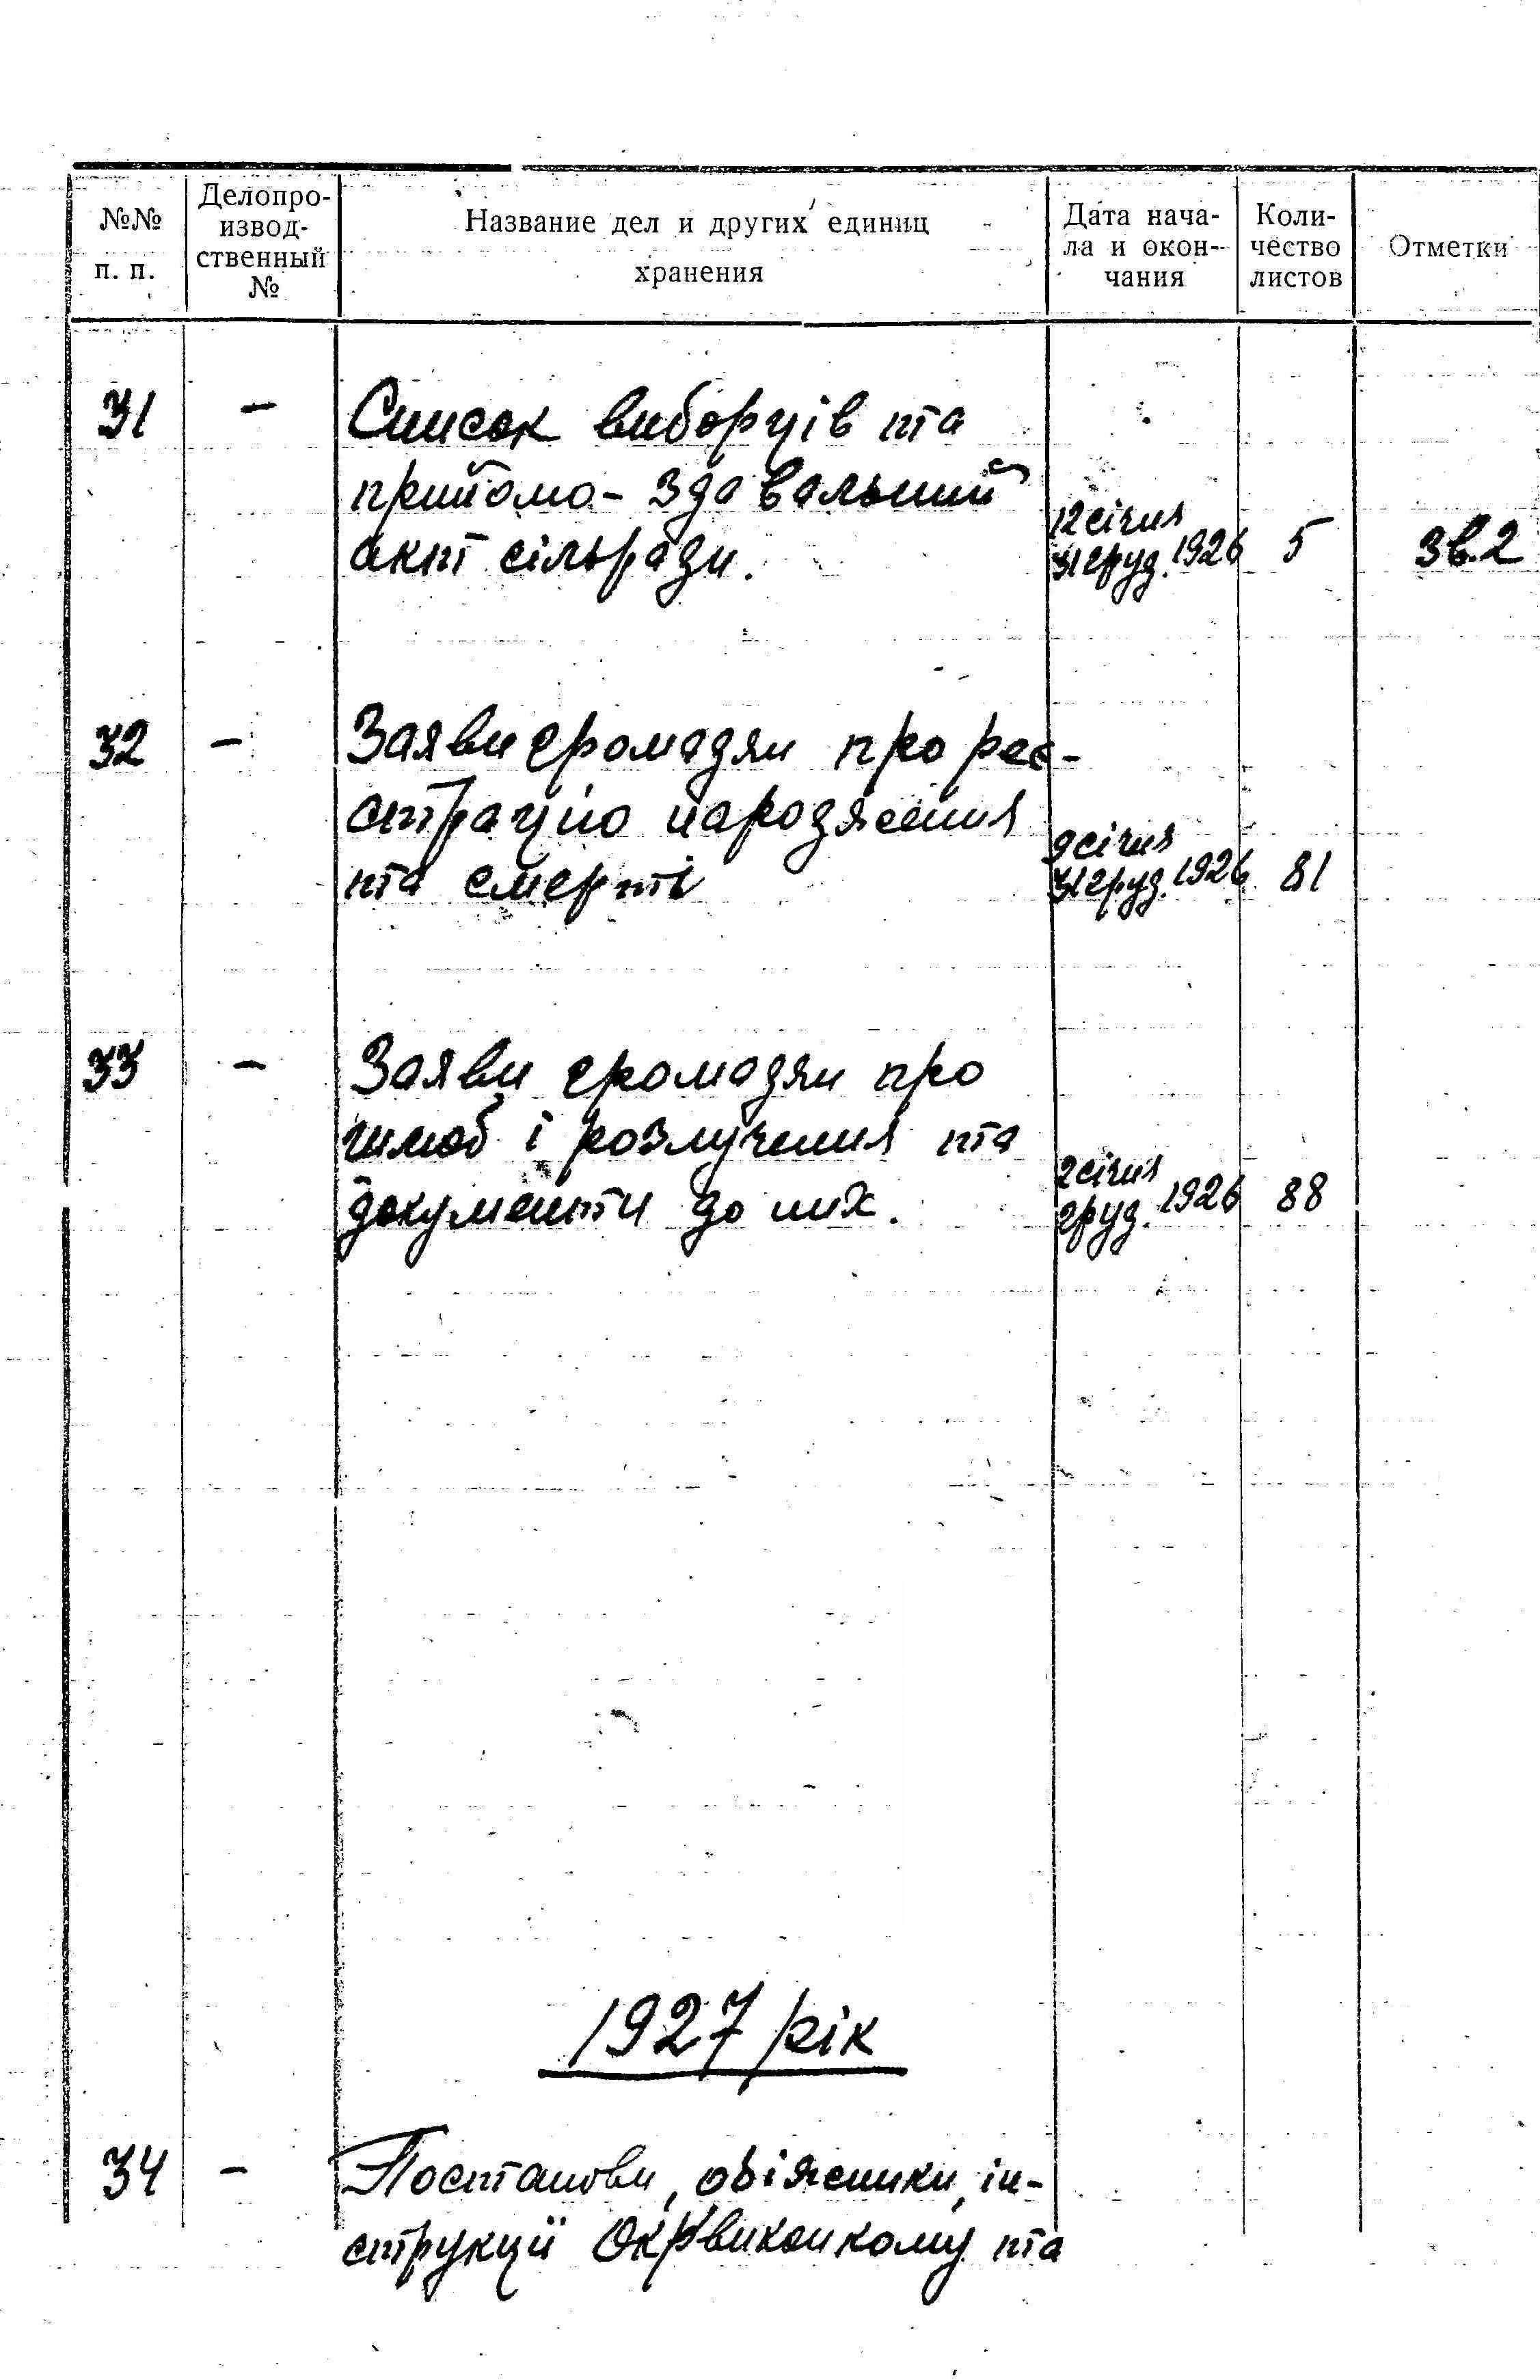 №№ п. п. | Делопро-изводственный № | Название дел и других единиц хранения | Дата нача-ла и окон-чания | Коли-чество листов | Отметки
31 – Список виборців та
прийомо-здавальний
акт сільради. 12 січня 31 груд. 1926 5 Зв.2
32 – Заяви громадян про реє-
страцію народження
та смерті 9 січня 31 груд. 1926 81
33 – Заяви громадян про
шлюб і розлучення та
документи до них. 2 січня груд. 1926 88
1927 рік
34 – Постанови, обіжники, ін-
струкції Окрвиконкому та